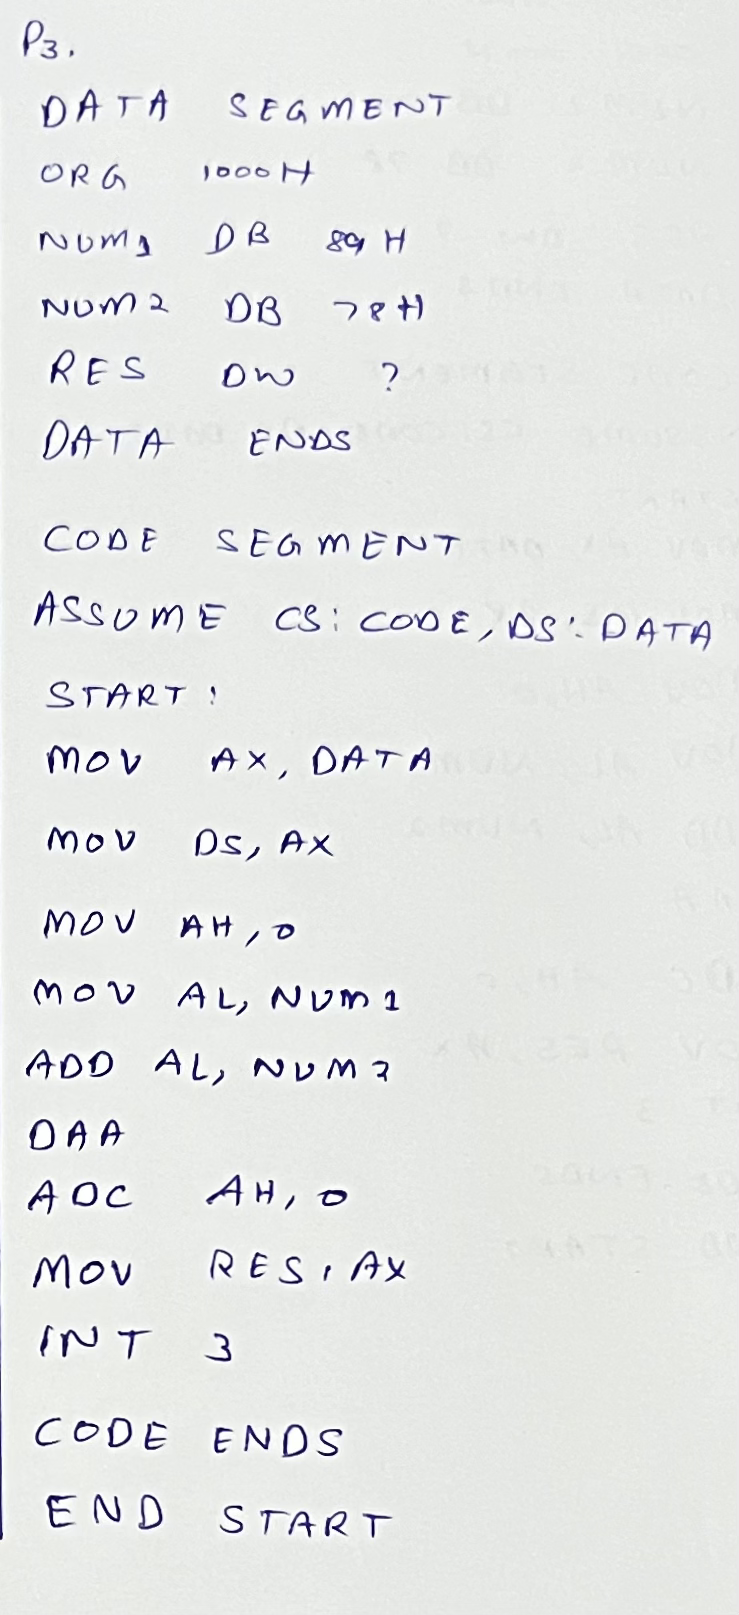 P3.
DATA SEGMENT
ORG 1000H
NUM1 DB 89H
NUM2 DB 78H
RES DW ?
DATA ENDS
CODE SEGMENT
ASSUME CS: CODE, DS: DATA
START:
MOV AX, DATA
MOV DS, AX
MOV AH, 0
MOV AL, NUM1
ADD AL, NUM2
DAA
ADC AH, 0
MOV RES, AX
INT 3
CODE ENDS
END START